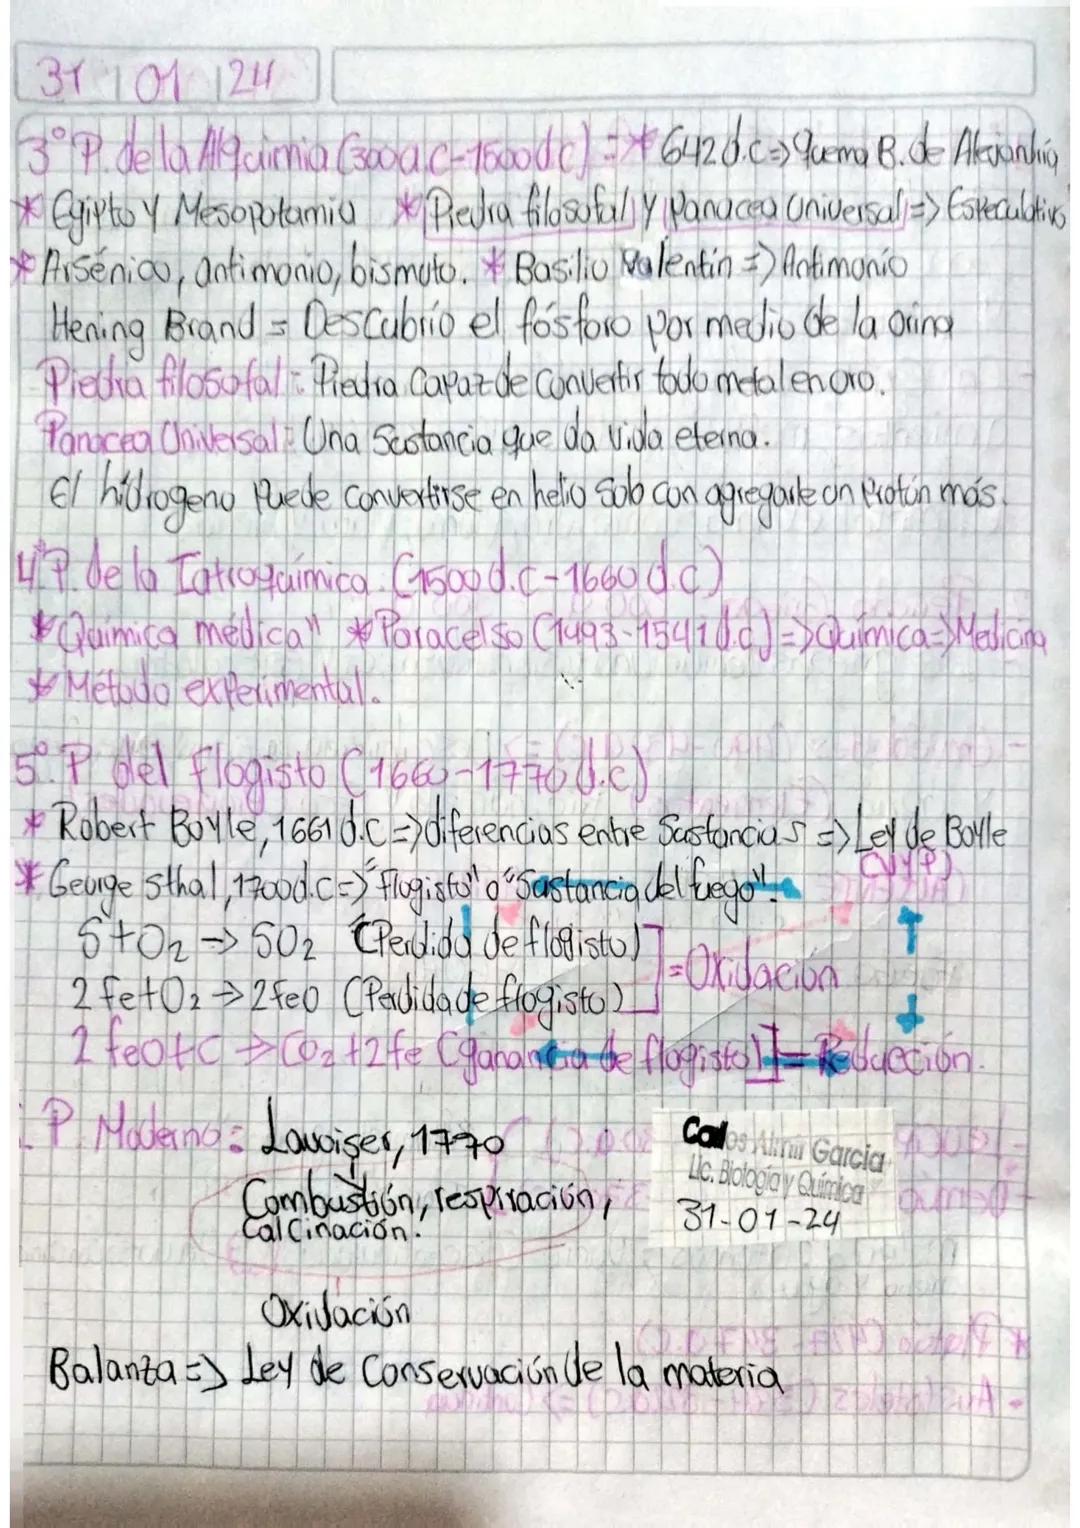 31 01 24
3° P. de la Alquimia (3000 a.c-1500 d.c) => * 642 d.c => Quema B. de Alejandría
* Egipto y Mesopotamia * Piedra filosofal y Panacea Universal => Especulativo
* Arsénico, antimonio, bismuto. * Basilio Valentín => Antimonio
Hening Brand = Descubrio el fósforo por medio de la orina
Piedra filosofal = Piedra Capaz de convertir todo metal en oro.
Panacea Universal = Una Sustancia que da vida eterna.
El hidrogeno puede convertirse en helio solo con agregarle un Protón más.
4° P. de la Iatroquímica. (1500 d.c-1660 d.c)
* "Química médica" * Paracelso (1493-1541 d.c) => Química => Medicina
* Método experimental.
5°. P del flogisto (1660-1770 d.c)
* Robert Boyle, 1661 d.c => diferencias entre Sustancias => Ley de Boyle
(V y P)
* George sthal, 1700d.c => "Flogisto" o "Sustancia del fuego".
S+O2 → SO2 (Perdida de flogisto)
2 fe+O2 → 2feO (Perdida de flogisto) ] = Oxidación
2 feO+C → CO2 + 2fe (ganancia de flogisto)] = Reducción.
P. Moderno: Lavoiser, 1770
Combustión, respiración,
Calcinación.
Carlos Almir Garcia
Lic. Biología y Química
31-01-24
Oxidación
Balanza => Ley de Conservación de la materia